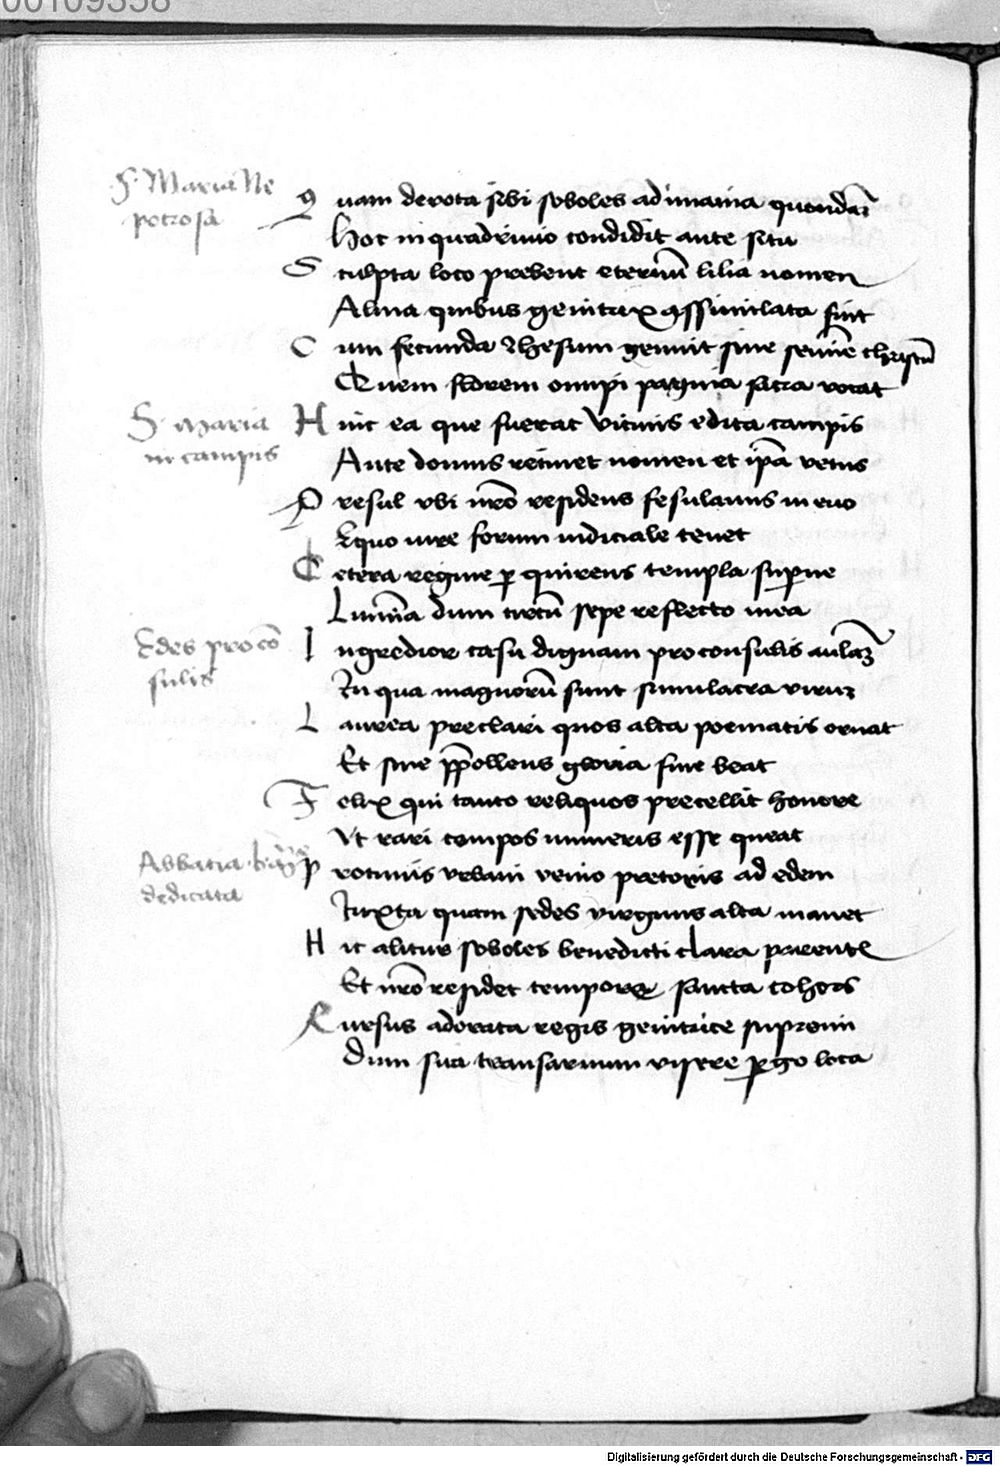 00109358
S. Maria Ne
potrosa
Quam devota sibi soboles ad limina quondam
Hoc in quadrivio condidit ante situ
Sculpta loco prebent eternū lilia nomen
Alma quibus genitrix assimilata fuit
Cum fecunda Jhesum genuit sine semīe christū
Quem florem omnipi pagina sacra vocat
S. maria
in campis
Hinc ea que fuerat vicinis edita campis
Ante domus retinet nomen et ip̄a vetus
Presul vbi nr̄o residens fesulanus in euo
Equo iure forum iudiciale tenet
Cetera regine perquirens templa superne
Lumina dum circū sepe reflecto mea
Edes proco
sulis
Ingredior casu dignam proconsulis aulam
In qua magnorū sunt simulacra virum
Laurea preclari quos alta poematis ornat
Et sine pp̄ollens gloria fine beat
Felix qui tanto reliquos precellit honore
Vt rari compos muneris esse queat
Abbatia
dedicata
Protinus vrbani venio pretoris ad edem
Juxta quam sedes virginis alta manet
Hic alitur soboles benedicti clara parente
Et nr̄o residet tempore sancta cohors
Rursus adorata regis genitrice supremi
Dum sua transarnum visere pergo loca
Digitalisierung gefördert durch die Deutsche Forschungsgemeinschaft - DFG